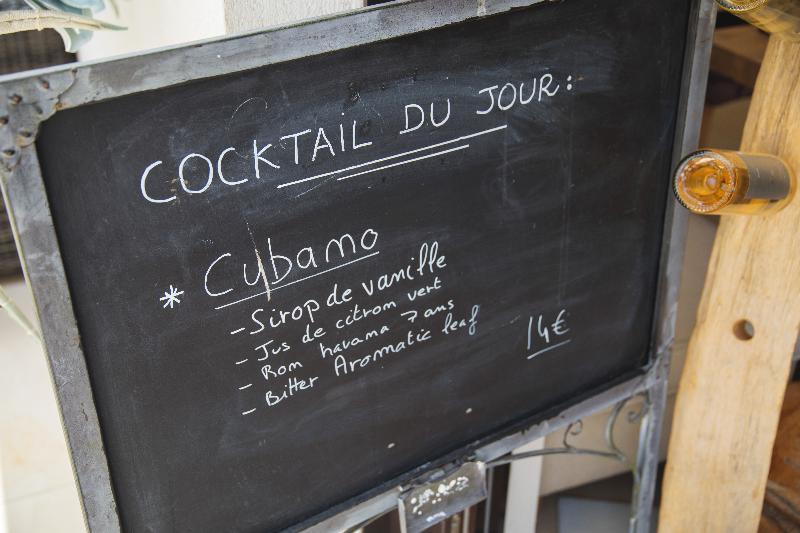 COCKTAIL DU JOUR:
* Cubamo
- Sirop de vanille
- Jus de citrom vert
- Rom havama 7 ans
- Bitter Aromatic leaf
14€